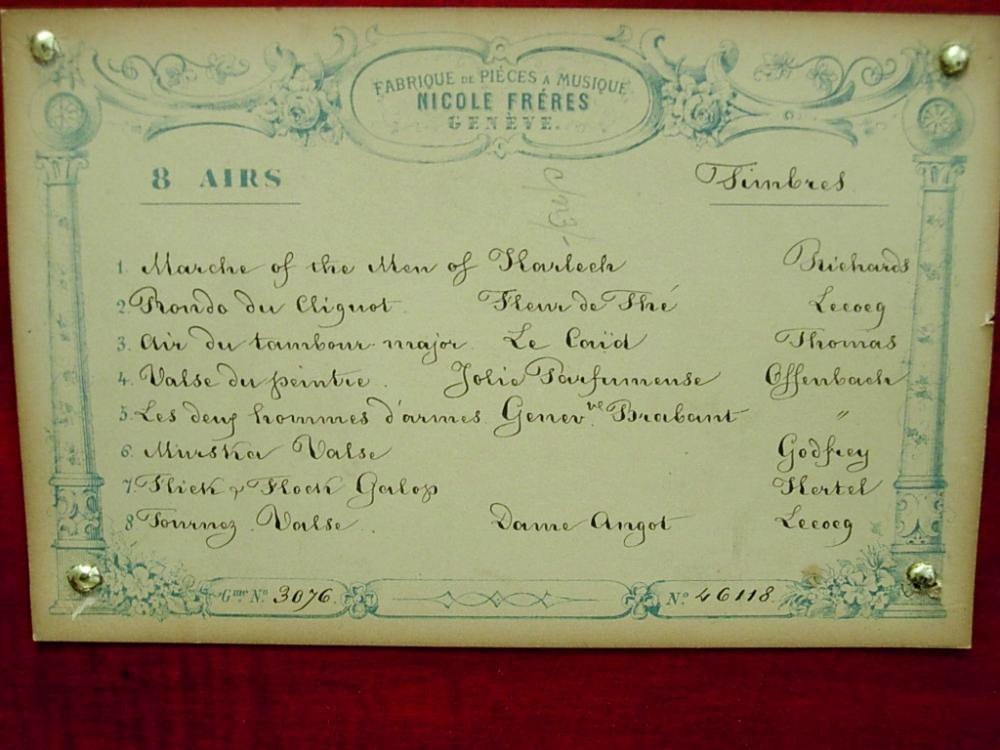 FABRIQUE DE PIÈCES A MUSIQUE
NICOLE FRÉRES
GENÈVE.
8 AIRS Timbres
1. Marche of the Men of Harlech Richards
2. Rondo du Cliquot Fleur de Thé Lecocq
3. Air du tambour-major. Le Caïd Thomas
4. Valse du peintre. Jolie Parfumeuse Offenbach
5. Les deux hommes d'armes Genev.ve Brabant "
6. Murska Valse Godfrey
7. Flick & Flock Galop Hertel
8 Tournez Valse. Dame Angot Lecocq
Gme No. 3076. No. 46118